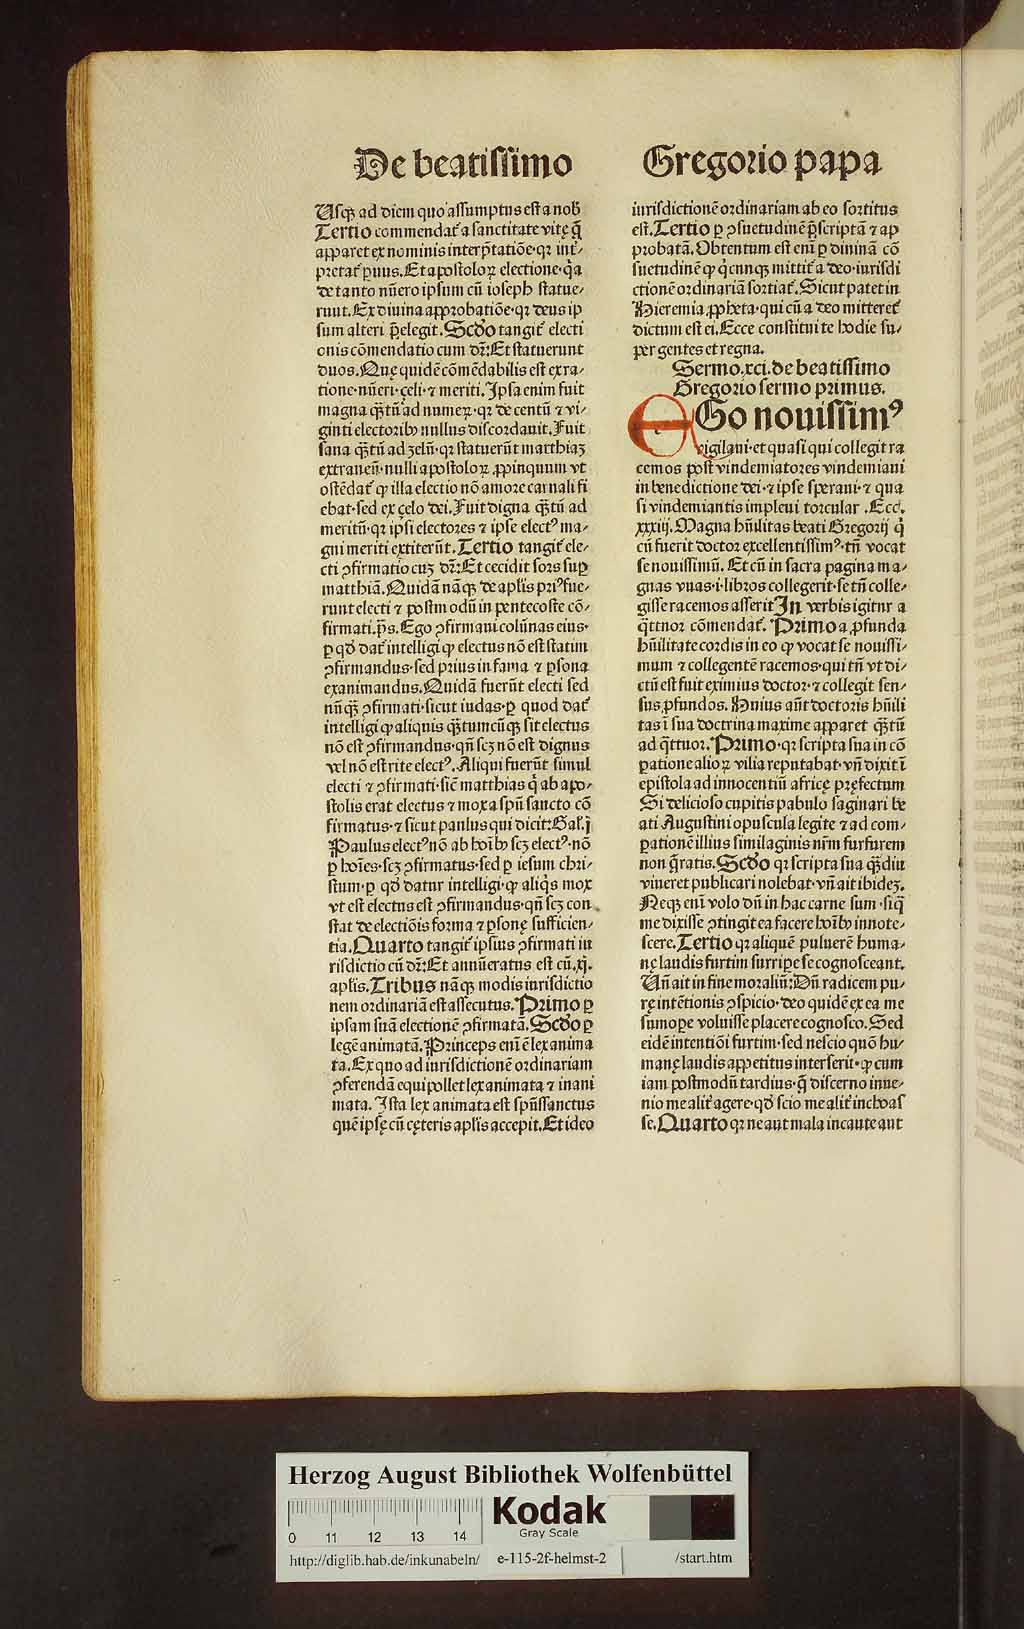 De beatissimo
Usqꝫ ad diem quo assumptus est a nob̄
Tertio commendat᷑ a sanctitate vitę q̄
apparet ex nominis interp̄tatiōe·qꝛ int̓-
pretat᷑ ꝑuus. Et apostoloꝝ electione·q̓a
de tanto nūero ipsum cū ioseph statue-
runt. Ex diuina approbatiōe·qꝛ deus ip
sum alteri p̄elegit. Scd̓o tangit᷑ electi
onis cōmendatio cum dꝛ̄: Et statuerunt
duos. Quę quidē cōmēdabilis est ex ra-
tione·nūeri·ʒeli·⁊ meriti. Ipsa enim fuit
magna qꝫ̄tū ad numeꝝ·qꝛ de centū ⁊ vi-
ginti electoribꝫ nullus discordauit. Fuit
sana qꝫ̄tū ad ʒelū·qꝛ statuerūt matthiaʒ
extraneū·nulli apostoloꝝ ꝓpinquum vt
ostēdat᷑ ꝙ illa electio nō amore carnali fi
ebat·sed ex celo dei. Fuit digna qꝫ̄tū ad
meritū·qꝛ ipsi electores ⁊ ipse elect⁹ ma-
gni meriti extiterūt. Tertio tangit᷑ ele-
cti ↄfirmatio cuʒ dꝛ̄: Et cecidit sors suꝑ
matthiā. Quidā nāqꝫ de apl̄is pri⁹ fue-
runt electi ⁊ postmodū in pentecoste cō-
firmati. p̄s. Ego ↄfirmaui colūnas eius·
ꝑ qd̓ dat᷑ intelligi ꝙ electus nō est statim
ↄfirmandus·sed prius in fama ⁊ ꝑsona
examinandus. Quidā fuerūt electi sed
nūqꝫ̄ ↄfirmati·sicut iudas·ꝑ quod dat᷑
intelligi ꝙ aliquis qꝫ̄tumcūqꝫ sit electus
nō est ↄfirmandus·qn̄ scʒ nō est dignus
vel nō est rite elect⁹. Aliqui fuerūt simul
electi ⁊ ↄfirmati·sic̄ matthias q̓ ab apo-
stolis erat electus ⁊ mox a spū sancto cō
firmatus·⁊ sicut paulus qui dicit: Gal̓.j̄
Paulus elect⁹ nō ab hoībꝫ scʒ elect⁹·nō
ꝑ hoīes·scʒ ↄfirmatus·sed ꝑ iesum chri-
stum·ꝑ qd̓ datur intelligi·ꝙ aliq̓s mox
vt est electus est ↄfirmandus·qn̄ scʒ con
stat de electiōis forma ⁊ ꝑsonę sufficien-
tia. Quarto tangit᷑ ipsius ↄfirmati iu
risdictio cū dꝛ̄: Et annūeratus est cū.xj.
apl̄is. Tribus nāqꝫ modis iurisdictio
nem ordinariā est assecutus. Primo ꝑ
ipsam suā electionē ↄfirmatā. Scd̓o ꝑ
legē animatā. Princeps enī ē lex anima
ta. Ex quo ad iurisdictionē ordinariam
ↄferendā equipollet lex animata ⁊ inani
mata. Ista lex animata est spūssanctus
quē ipse cū cęteris apl̄is accepit. Et ideo
Gregorio papa
iurisdictionē ordinariam ab eo sortitus
est. Tertio ꝑ ↄsuetudinē p̄scriptā ⁊ ap
probatā. Obtentum est enī ꝑ diuinā cō
suetudinē ꝙ q̓cunqꝫ mittit᷑ a deo·iurisdi
ctionē ordinariā sortiat᷑. Sicut patet in
Hieremia ꝓpheta·qui cū a deo mitteret᷑
dictum est ei. Ecce constitui te hodie su-
per gentes et regna.
Sermo.xci.de beatissimo
Gregorio sermo primus.
EGo nouissim⁹
vigilaui·et quasi qui collegit ra
cemos post vindemiatores vindemiaui
in benedictione dei·⁊ ipse speraui·⁊ qua
si vindemiantis impleui torcular. Ecc̄l.
xxxiij. Magna hūilitas beati Gregorij q̓
cū fuerit doctor excellentissim⁹·tn̄ vocat
se nouissimū. Et cū in sacra pagina ma-
gnas vuas·i·libros collegerit·se tn̄ colle-
gisse racemos asserit In verbis igitur a
q̄ttuor cōmendat᷑. Primo a ꝓfunda
hūilitate cordis in eo ꝙ vocat se nouissi-
mum ⁊ collegentē racemos·qui tn̄ vt di-
ctū est fuit eximius doctor·⁊ collegit sen-
sus ꝓfundos. Huius aūt doctoris hūili
tas ī sua doctrina maxime apparet qꝫ̄tū
ad q̄ttuor. Primo·qꝛ scripta sua in cō
ꝑatione alioꝝ vilia reputabat·vn̄ dixit ī
epistola ad innocentiū africę pręfectum
Si delicioso cupitis pabulo saginari be
ati Augustini opuscula legite ⁊ ad com-
ꝑationē illius similaginis nr̄m furfurem
non q̄ratis. Scd̓o qꝛ scripta sua qꝫ̄diu
viueret publicari nolebat·vn̄ ait ibideʒ.
Neqꝫ enī volo dū in hac carne sum·si q̓d
me dixisse ↄtingit ea facere hoībꝫ innote-
scere. Tertio qꝛ aliquē puluerē huma-
nę laudis furtim surripe se cognosceant.
Vn̄ ait in fine moraliū: Dū radicem pu-
rę intētionis ↄspicio·deo quidē ex ea me
summoꝑe voluisse placere cognosco. Sed
eidē intentiōi furtim·sed nescio quō hu-
manę laudis appetitus interserit·ꝙ cum
iam postmodū tardius·q̄ discerno inue-
nio me alit᷑ agere·qd̓ scio me alit᷑ inchoas
se. Quarto qꝛ ne aut mala incaute aut
Herzog August Bibliothek Wolfenbüttel
Kodak
Gray Scale
0 11 12 13 14
http://diglib.hab.de/inkunabeln/ e-115-2f-helmst-2 /start.htm